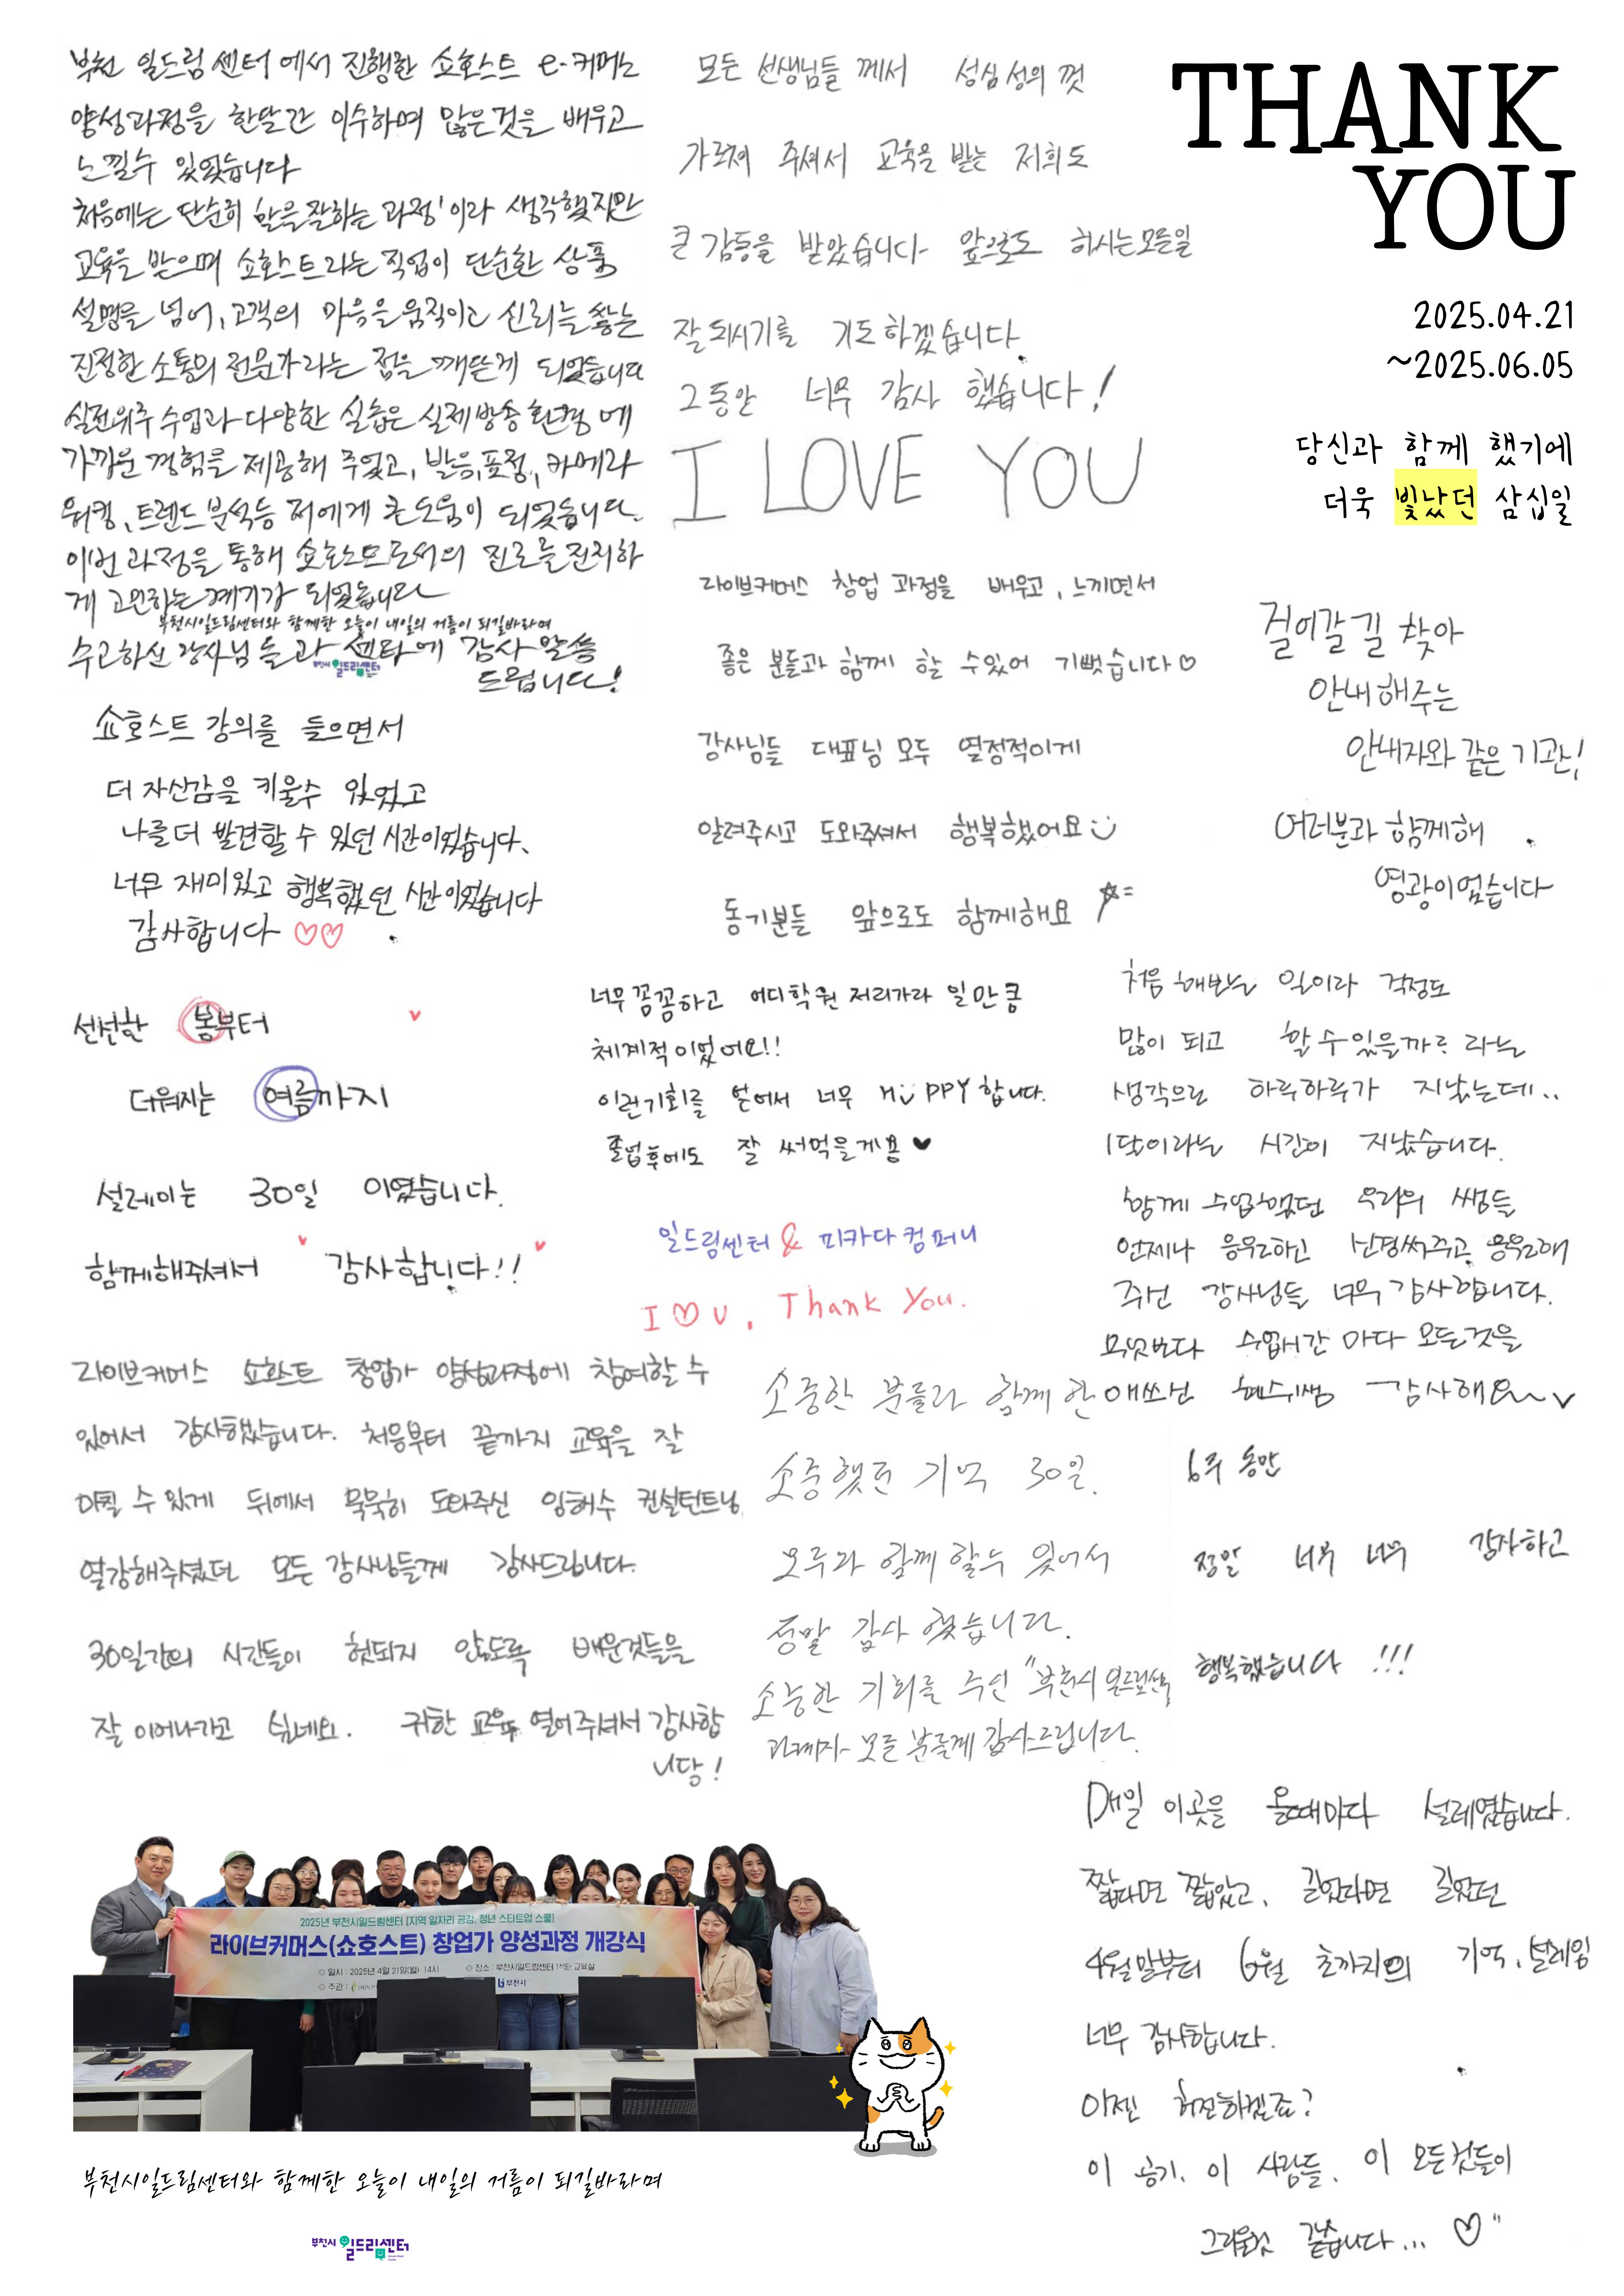 부천 일드림센터에서 진행한 쇼호스트 e-커머스
양성과정을 한달간 이수하며 많은것을 배우고
느낄수 있었습니다
처음에는 단순히 '말을잘하는 과정'이라 생각했지만
교육을 받으며 쇼호스트라는 직업이 단순한 상품
설명을 넘어, 고객의 마음을 움직이고 신뢰를 쌓는
진정한 소통의 전문가라는 점을 깨닫게 되었습니다
실전위주 수업과 다양한 실습은 실제방송환경에
가까운 경험을 제공해 주었고, 발음, 표정, 카메라
워킹, 트렌드분석등 저에게 큰도움이 되었습니다.
이번과정을 통해 쇼호스트로서의 진로를진지하
게 고민하는계기가 되었습니다
부천시일드림센터와 함께한 오늘이 내일의 거름이 되길바라며
수고하신 강사님들과 센터에 감사 말씀
부천시 일드림센터
드립니다!
쇼호스트 강의를 들으면서
더 자신감을 키울수 있었고
나를더 발견할 수 있던 시간이었습니다.
너무 재미있고 행복했던 시간이었습니다
감사합니다 ♡♡
선선한 봄부터
더워지는 여름까지
설레이는 30일 이였습니다.
함께해주셔서 감사합니다!!
라이브커머스 쇼호스트 창업가 양성과정에 참여할 수
있어서 감사했습니다. 처음부터 끝까지 교육을 잘
마칠 수 있게 뒤에서 묵묵히 도와주신 임해수 컨설턴트님,
열강해주셨던 모든 강사님들께 감사드립니다.
30일간의 시간들이 헛되지 않도록 배운것들을
잘 이어나가고 싶네요. 귀한 교육 열어주셔서 감사합
니당!
모든 선생님들 께서 성심성의 껏
가르쳐 주셔서 교육을 받는 저희도
큰 감동을 받았습니다 앞으로도 하시는모든일
잘되시기를 기도하겠습니다.
그동안 너무 감사 했습니다!
I LOVE YOU
라이브커머스 창업 과정을 배우고, 느끼면서
좋은 분들과 함께 할 수있어 기뻤습니다♡
강사님들 대표님 모두 열정적이게
알려주시고 도와주셔서 행복했어요
동기분들 앞으로도 함께해요
너무 꼼꼼하고 어디학원 저리가라 일만큼
체계적이었어요!!
이런기회를 얻어서 너무 HAPPY합니다.
졸업후에도 잘 써먹을게용 ♥
일드림센터 & 피카다컴퍼니
I ♡ U, Thank You.
소중한 분들과 함께 한
소중했던 기억 30일.
모두와 함께 할수 있어서
정말 감사 했습니다.
소중한 기회를 주신 "부천시 일드림센터"
관계자 모든 분들께 감사드립니다.
THANK
YOU
2025.04.21
~2025.06.05
당신과 함께 했기에
더욱 빛났던 삼십일
걸어갈 길 찾아
안내해주는
안내자와 같은 기관!
여러분과 함께해
영광이었습니다
처음 해보는 일이라 걱정도
많이 되고 할수있을까? 라는
생각으로 하루하루가 지났는데..
1달이라는 시간이 지났습니다.
함께 수업했던 우리의 쌤들
언제나 응원하고 신경써주고, 응원해
주신 강사님들 너무 감사합니다.
무엇보다 수업시간 마다 모든것을
애쓰신 해수쌤 감사해요~
6주 동안
정말 너무 너무 감사하고
행복했습니다 !!!
매일 이곳을 올때마다 설레였습니다.
짧다면 짧았고, 길었다면 길었던
4월말부터 6월 초까지의 기억, 설레임
너무 감사합니다.
이젠 허전하겠죠?
이 공기, 이 사람들, 이 모든것들이
그리울것 같습니다... ♡"
2025년 부천시일드림센터 [지역 일자리 공감, 청년 스타트업 스쿨]
라이브커머스(쇼호스트) 창업가 양성과정 개강식
◎ 일시 : 2025년 4월 21일(월) 14시 ◎ 장소 : 부천시일드림센터 1센터 교육실
◎ 주관 : 부천시
부천시일드림센터와 함께한 오늘이 내일의 거름이 되길바라며
부천시 일드림센터